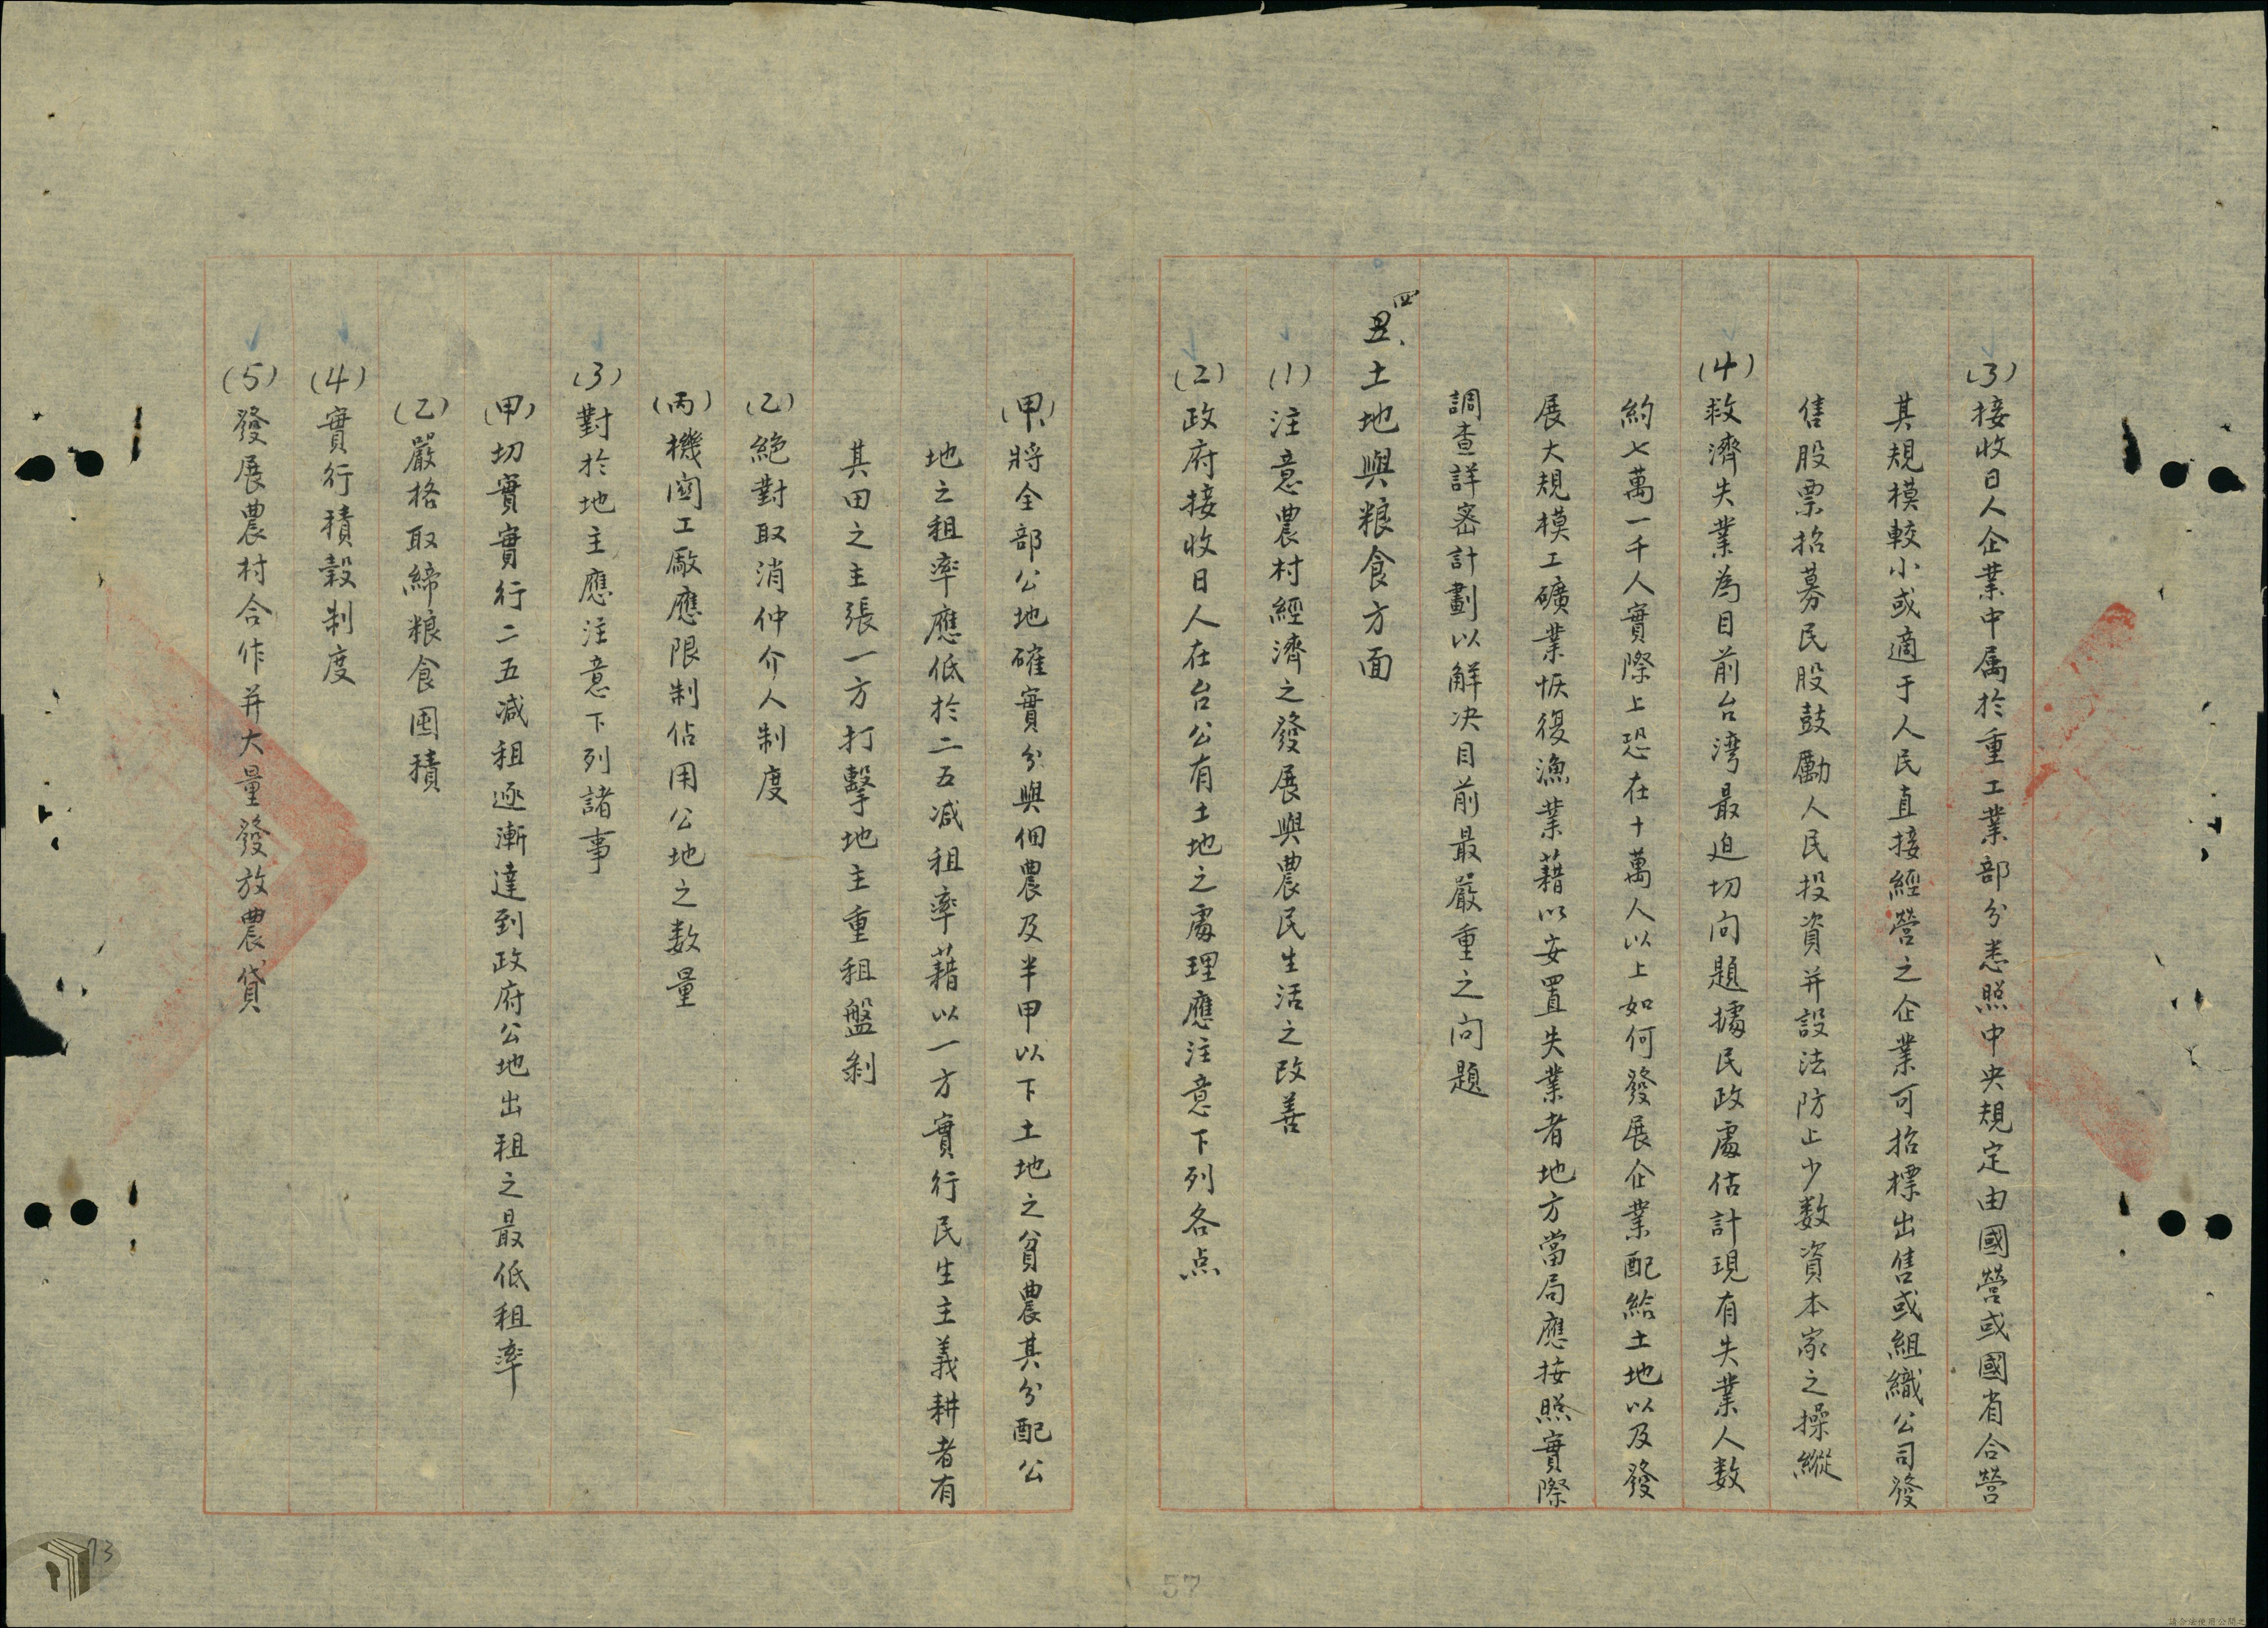 (3)接收日人企業中属於重工業部分悉照中央規定由國營或國省合營
其規模較小或適于人民直接經營之企業可招標出售或組織公司發
售股票招募民股鼓勵人民投資并設法防止少数資本家之操縱
(4)救濟失業為目前台湾最迫切问題據民政處估計現有失業人数
約七萬一千人實際上恐在十萬人以上如何發展企業配給土地以及發
展大規模工礦業恢復漁業藉以安置失業者地方當局應按照實際
調查詳密計劃以解决目前最嚴重之问題
四
丑、土地與粮食方面
(1)注意農村經濟之發展與農民生活之改善
(2)政府接收日人在台公有土地之處理應注意下列各点
(甲)將全部公地確實分與佃農及半甲以下土地之貧農其分配公
地之租率應低於二五减租率藉以一方實行民生主義耕者有
其田之主張一方打擊地主重租盤剝
(乙)絶對取消仲介人制度
(丙)機関工廠應限制佔用公地之数量
(3)對於地主應注意下列諸事
(甲)切實實行二五减租逐漸達到政府公地出租之最低租率
(乙)嚴格取締粮食囤積
(4)實行積穀制度
(5)發展農村合作并大量發放農貸
57
73